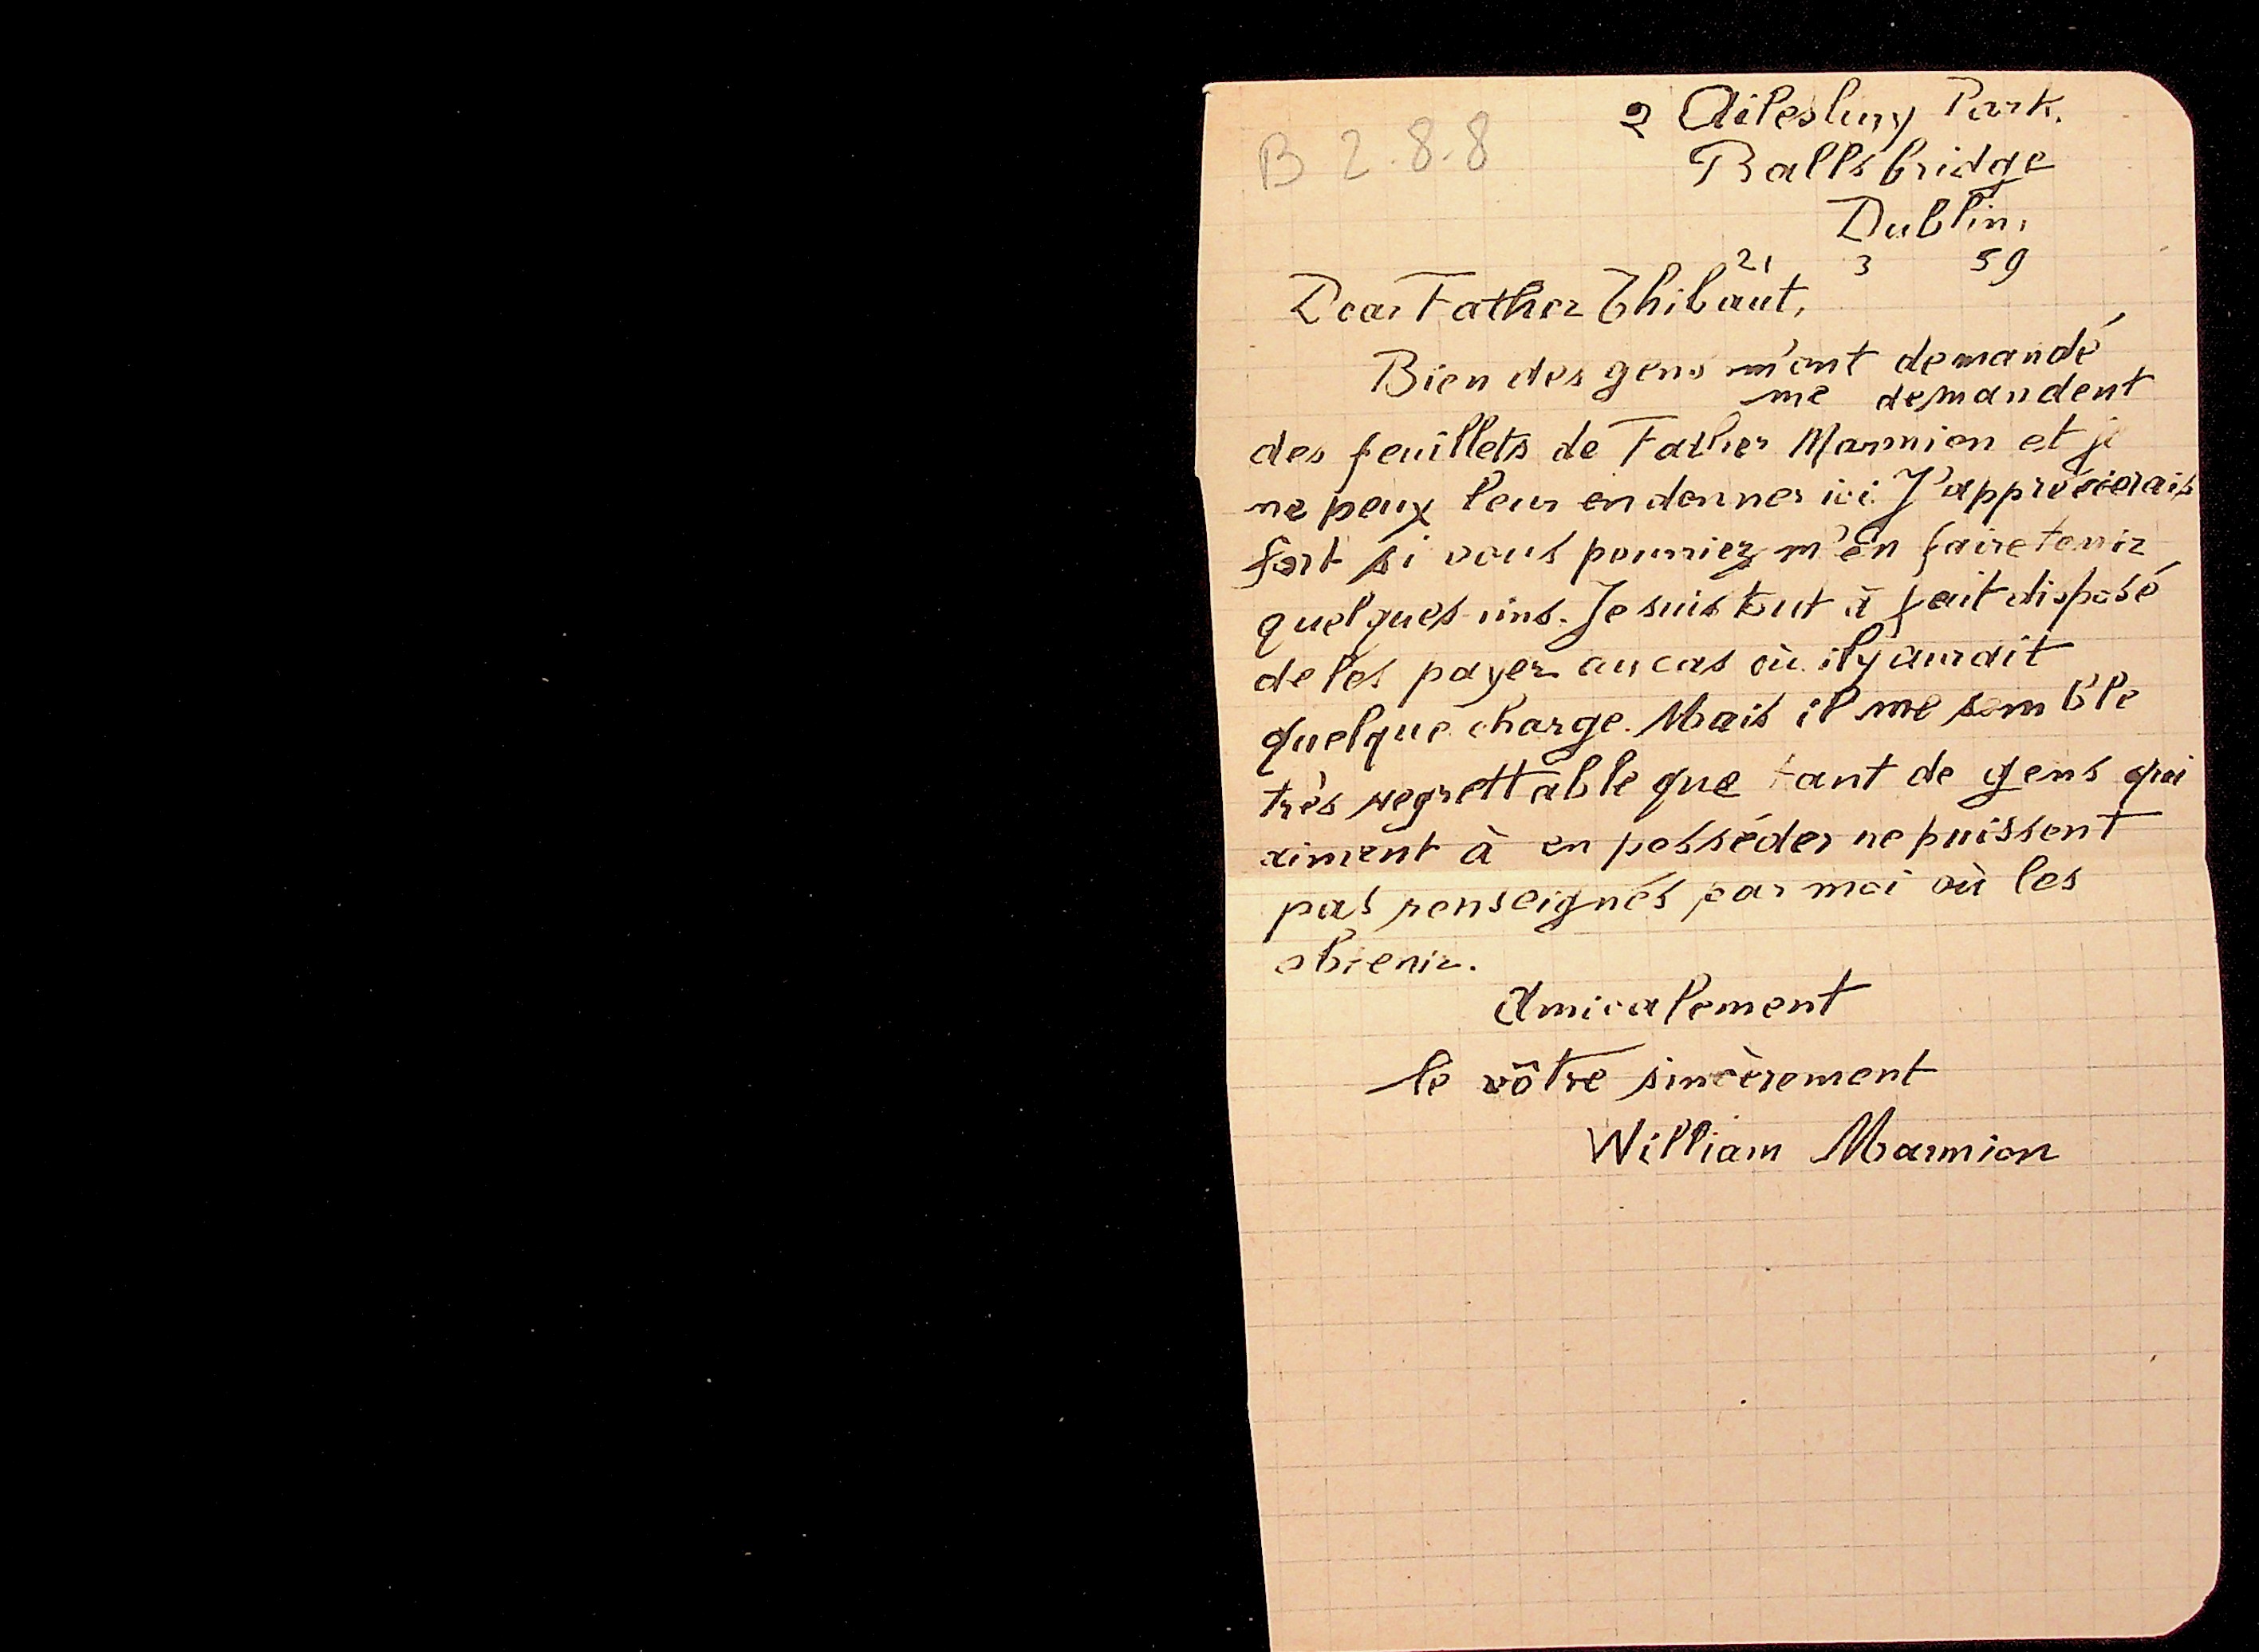 B 2.8.8
2 Ailesbury Park.
Ballsbridge
Dublin.
21 3 59
Dear Father Thibaut,
Bien des gens m'ont demandé
me demandent
des feuillets de Father Marmion et je
ne peux leur en donner ici. J'apprécierais
fort si vous pourriez m'en faire tenir
quelques-uns. Je suis tout à fait disposé
de les payer au cas où il y aurait
quelque charge. Mais il me semble
très regrettable que tant de gens qui
aiment à en posséder ne puissent
pas renseignés par moi où les
obtenir.
Amicalement
le vôtre sincèrement
William Marmion